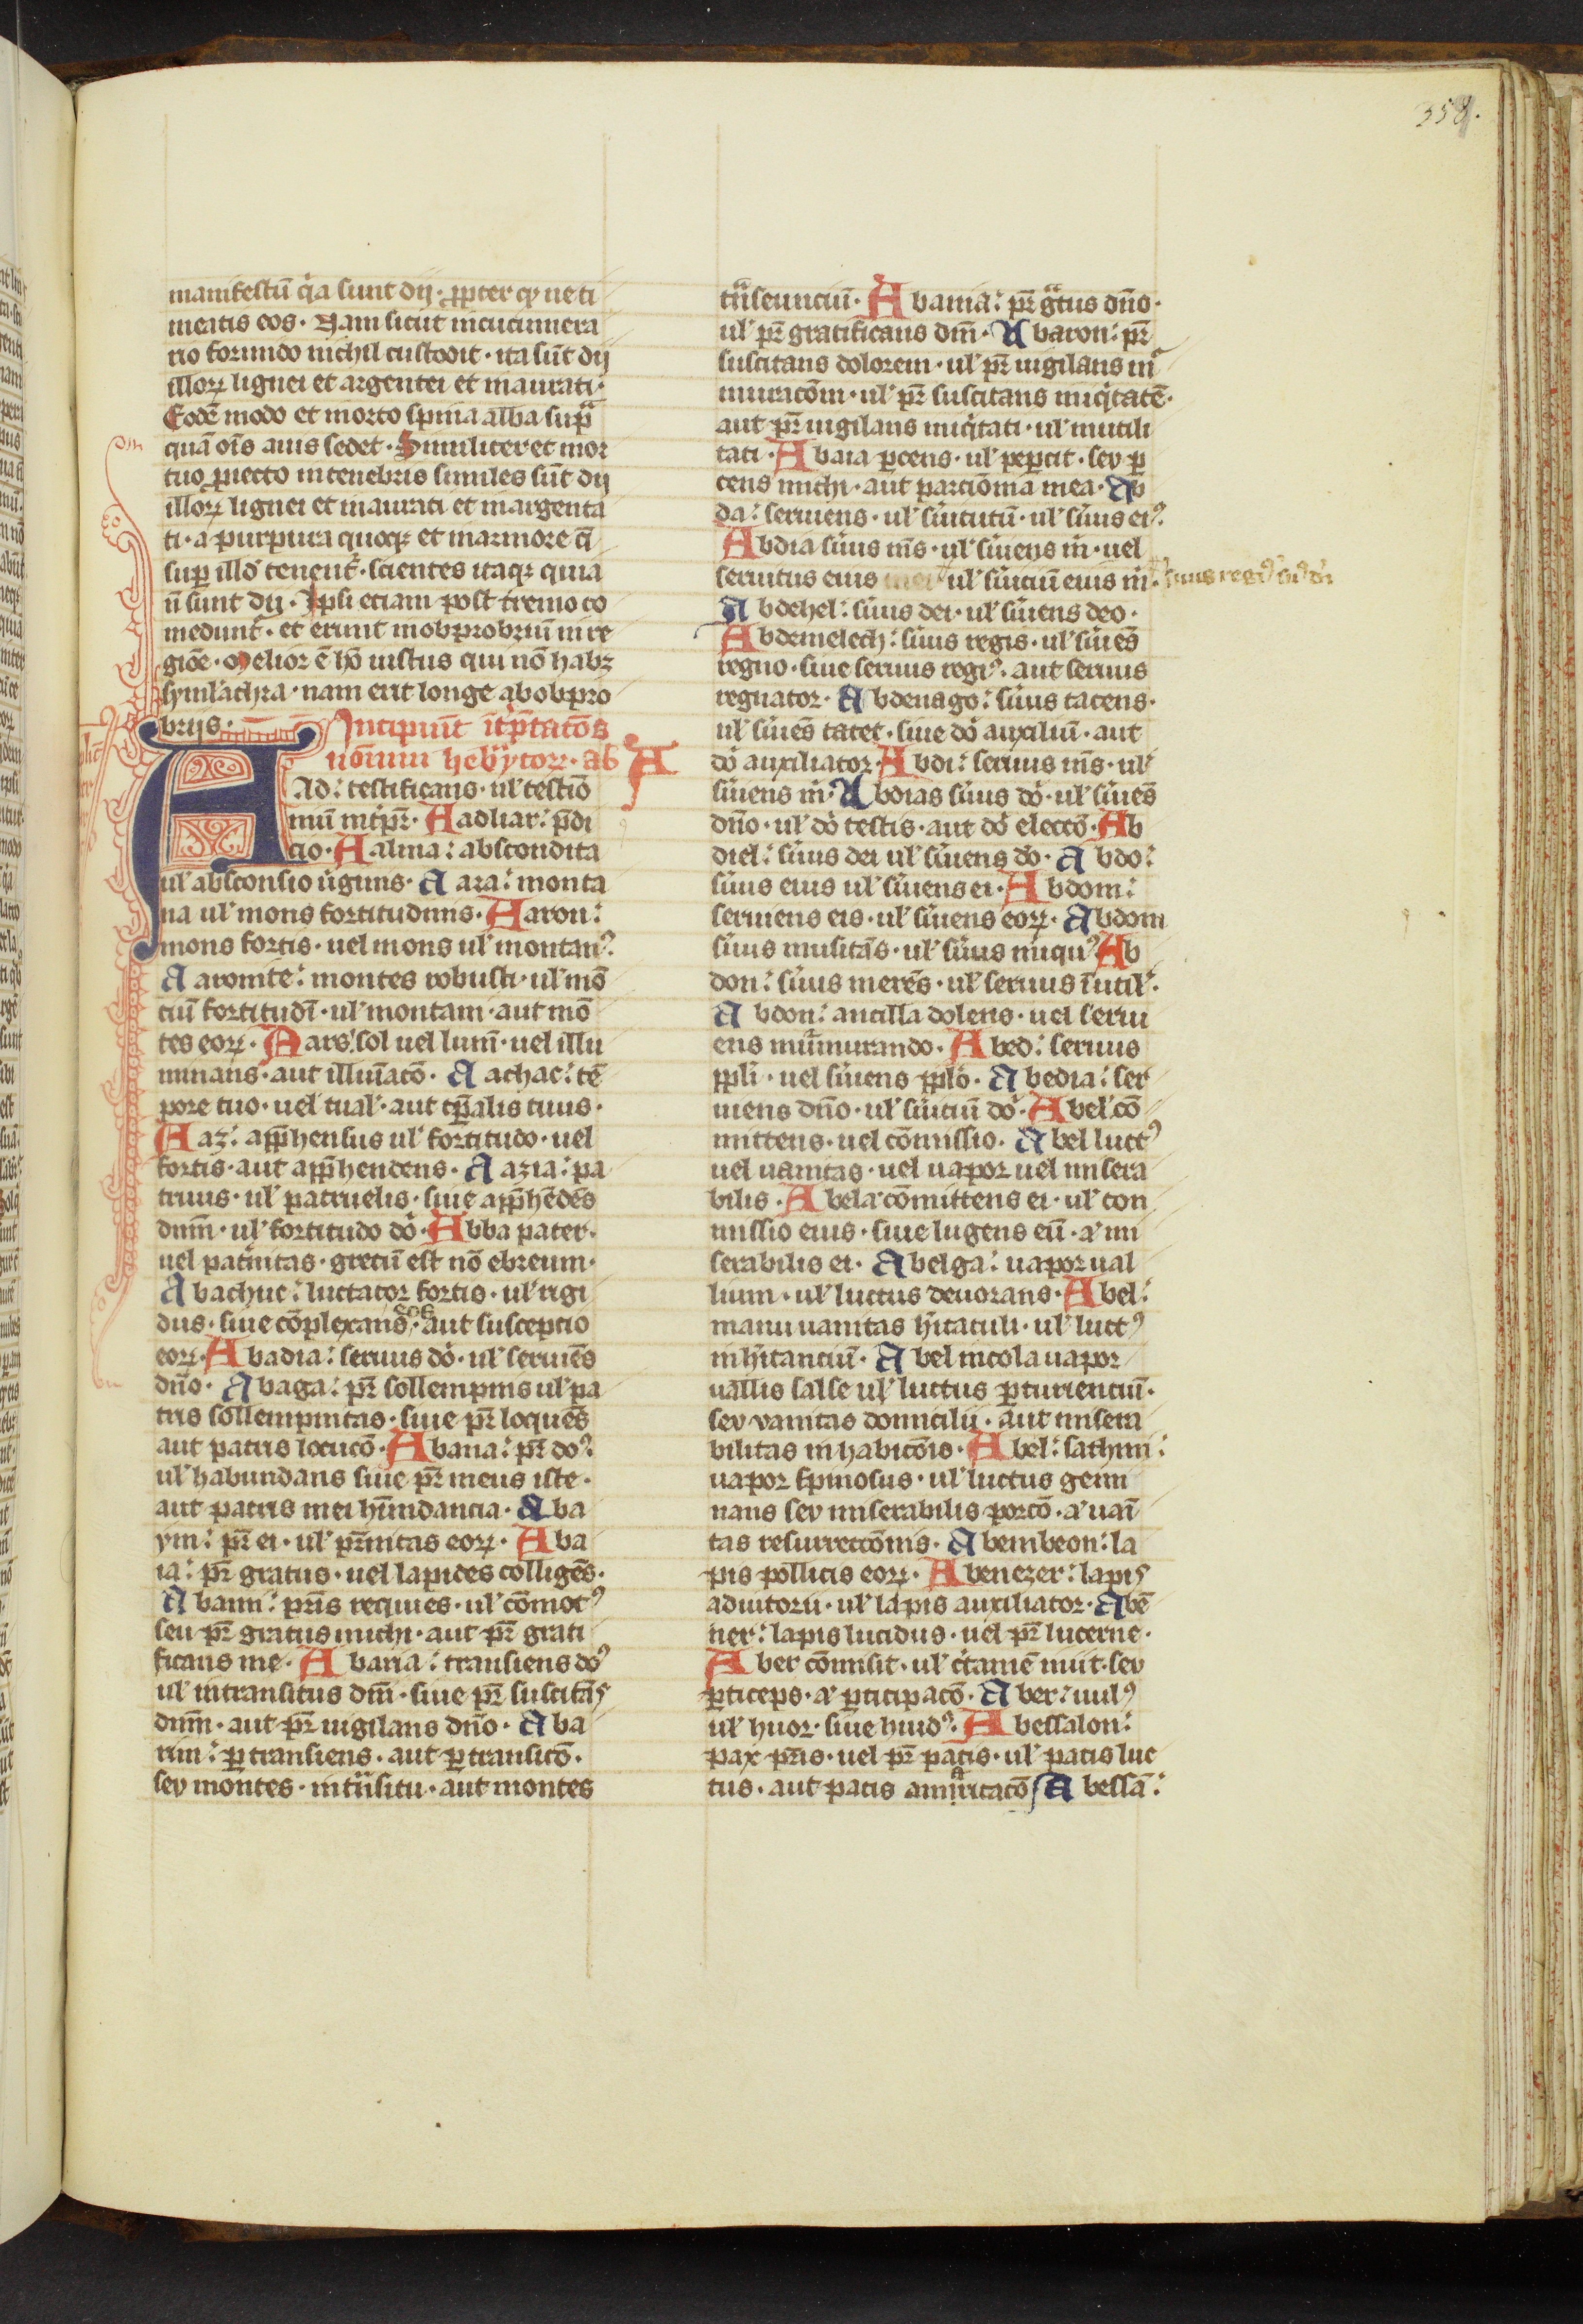 358.
manifestū q̇a sunt dij · ꝓpter qͩ ne ti
meatis eos · Nam sicut in cucumera
rio formido nichil custodit · ita sūt dij
illoꝝ lignei et argentei et inaurati ·
Eodē modo et in orto spina alba sup̄
quā oīs auis sedet · Similiter et mor
tuo ꝓiecto in tenebris similes sūt dij
illoꝝ lignei et inaurati et inargenta
ti · a purpura quoqꝫ et marmore
suꝑ illō tenent · scientes itaqꝫ quia
ñ sunt dij · Ipsi etiam post tremo co
medunt̉ · et erunt in obprobriū in re
giōe · Melior ē hō iustus qui nō habꝫ
symlachra · nam erit longe ab obpro
brijs · Incipiūt īt̉p̄tatōes
nōīnum hebrӱcoꝝ · ab A
Ad : testificans · ul̉ testiō
niū Aadliar : p̄di
cio · Aalma : abscondita
ul̉ absconsio ūginis · Aara : monta
na ul̉ mons fortitudinis · Aaron :
mons fortis · uel mons ul̉ montan⁹
Aaronite : montes robusti · ul̉ mō
tiū fortitudī · ul̉ montani · aut mō
tes eoꝝ · Aars : sol uel lumī · uel illu
minans · aut illuīatō · Aachac : tē
pore tuo · uel tual̉ · aut tp̄alis tuus ·
Aaz : app̄hensus ul̉ fortitudo · uel
fortis · aut app̄hendens · Aazia : pa
truus · ul̉ patruelis · siue app̄hēdēs
dnm̄ · ul̉ fortitudo dō · Abba pater ·
uel pat̉nitas · grecū est nō ebreum ·
Abachuc : luctator fortis · ul̉ rigi
dus · siue cōplexans · aut susceptio
eoꝝ · Abadia : seruus dō · ul̉ seruiēs
dn̄o · Abaga : pr̄ sollempnis ul̉ pa
tris sollempnitas · siue pr̄ loquēs
aut patris locucō · Abana : pr̄ do⁹
ul̉ habundans siue pr̄ meus iste ·
aut patris mei hn̄ndancia · Aba
ym : pr̄ ei · ul̉ pr̄nitas eoꝝ · Aba
ia : pr̄ gratus · uel lapides colligēs ·
Abann : pr̄is requies · ul̉ cōmot⁹
seu pr̄ gratus michi · aut pr̄ grati
ficans me · Abana : transiens dō⁹
ul̉ in transitus dm̄ · siue pr̄ suscitās
dnm̄ · aut pr̄ uigilans dn̄o · Aba
rim : ꝑtransiens · aut ꝑtransitō ·
sev montes · in tn̄situ · aut montes
tn̄seunciū · Abania : pr̄ gͣtus dn̄o ·
ul̉ pr̄ gratificans dm̄ · Abaron : pr̄
suscitans dolorem · ul̉ pr̄ uigilans mͬ
muracōm · ul̉ pr̄ suscitans iniq̇tatē ·
aut pr̄ uigilans iniq̇tati · ul̉ inutili
tati · Abara ꝑcens · ul̉ peꝑcit · sev ꝑ
cens michi · aut parciōma mea · Ab
da : seruiens · ul̉ sūitutū · ul̉ sūus ei⁹
Abdia sūus m̄s · ul̉ sūiens m̄ · uel
seruitus eius ul̉ sūiciū eius m̄ · sūus regi⁹
Abdehel : sūus dei · ul̉ sūiens deo ·
Abdemelech : sūus regis · ul̉ sūiēs
regno · siue seruus regi⁹ aut seruus
regnator · Abdenago : sūus tacens ·
ul̉ sūiēs tacet · siue dō auxiliū · aut
dō auxiliator · Abdi : seruus m̄s · ul̉
sūiens m̄ · Abdias sūus dō · ul̉ sūiēs
dn̄o · ul̉ dō testis · aut dō electō · Ab
diel : sūus dei ul̉ sūiens dō · Abdo :
sūus eius ul̉ sūiens ei · Abdom :
seruiens eis · ul̉ sūiens eoꝝ · Abdom
sūus musitās · ul̉ sūus iniqu⁹ Ab
don : sūus merēs · ul̉ seruus īutil̉ ·
Abdon : ancilla dolens · uel serui
ens mūmurando · Abed : seruus
ppl̄i · uel sūiens pplō · Abedia : ser
uiens dn̄o · ul̉ sūitiū dō · Abel cō
mittens · uel cōmissio · Abel luct⁹
uel uanitas · uel uapor uel misera
bilis · Abela cōmittens ei · ul̉ con
missio eius · siue lugens eū · a᷑ mi
serabilis ei · Abelga : uapor ual
lium · ul̉ luctus deuorans · Abel :
manu uanitas hītaculi · ul̉ luct⁹
inhītanciū · Abel incola uapor
uallis salse ul̉ luctus ꝑturienciū ·
sev vanitas domicilii · aut misera
bilitas in habicōis · Abel : sathim :
uapor spinosus · ul̉ luctus gemi
nans sev miserabilis porcō · a᷑ uaī
tas resurrectōnis · Abembeon : la
pis pollicis eoꝝ · Abenezer : lapis
adiutorii · ul̉ lapis auxiliator · Abē
ner : lapis lucidus · uel pr̄ lucerne ·
Aber cōmisit · ul̉ c̉tamē iniit · sev
ꝑticeps · a᷑ ꝑticipacō · Aber : uul⁹
ul̉ liuor · siue liuid⁹ Abessalon :
pax pr̄is · uel pr̄ pacis · ul̉ pacis luc
tus · aut pacis Abessā :